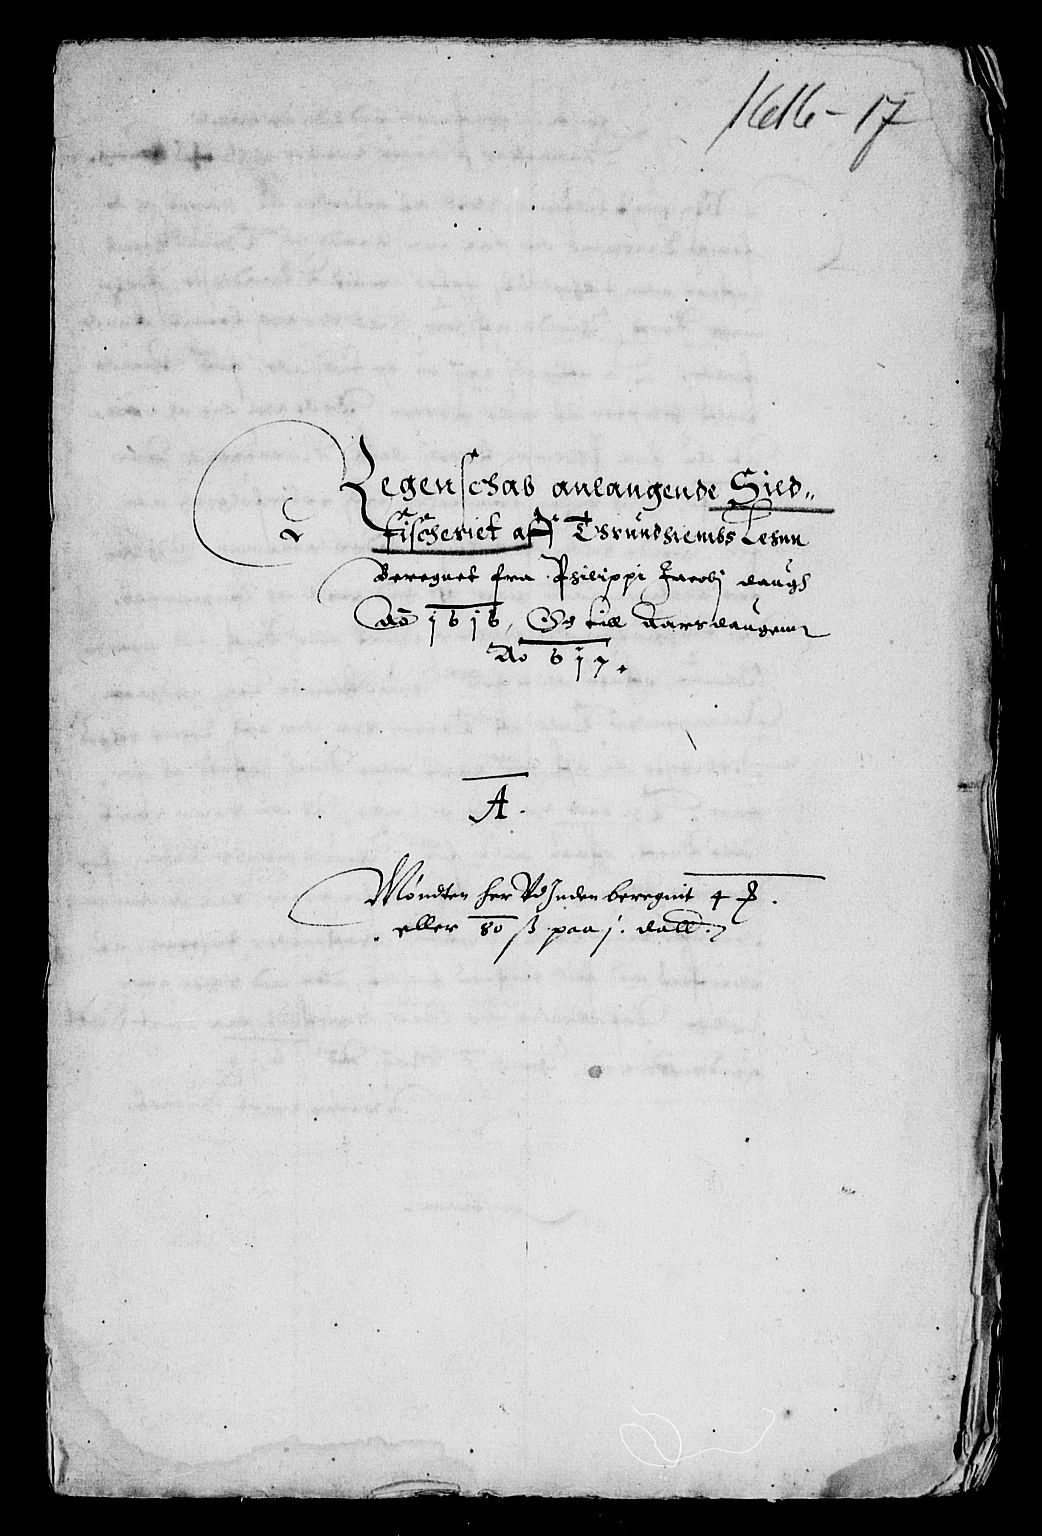 1616-17
Regenschab anlangende Sild„
fischeriet aff Thrundhiembs Lehnn
Beregnet fra Philippi Jacobj daugh
Ao 1616, Og till Aarsdaugenn
Ao 617.
A.
Møndten her Vdjnden beregnit 4
eller 80 ß paa j. dall.